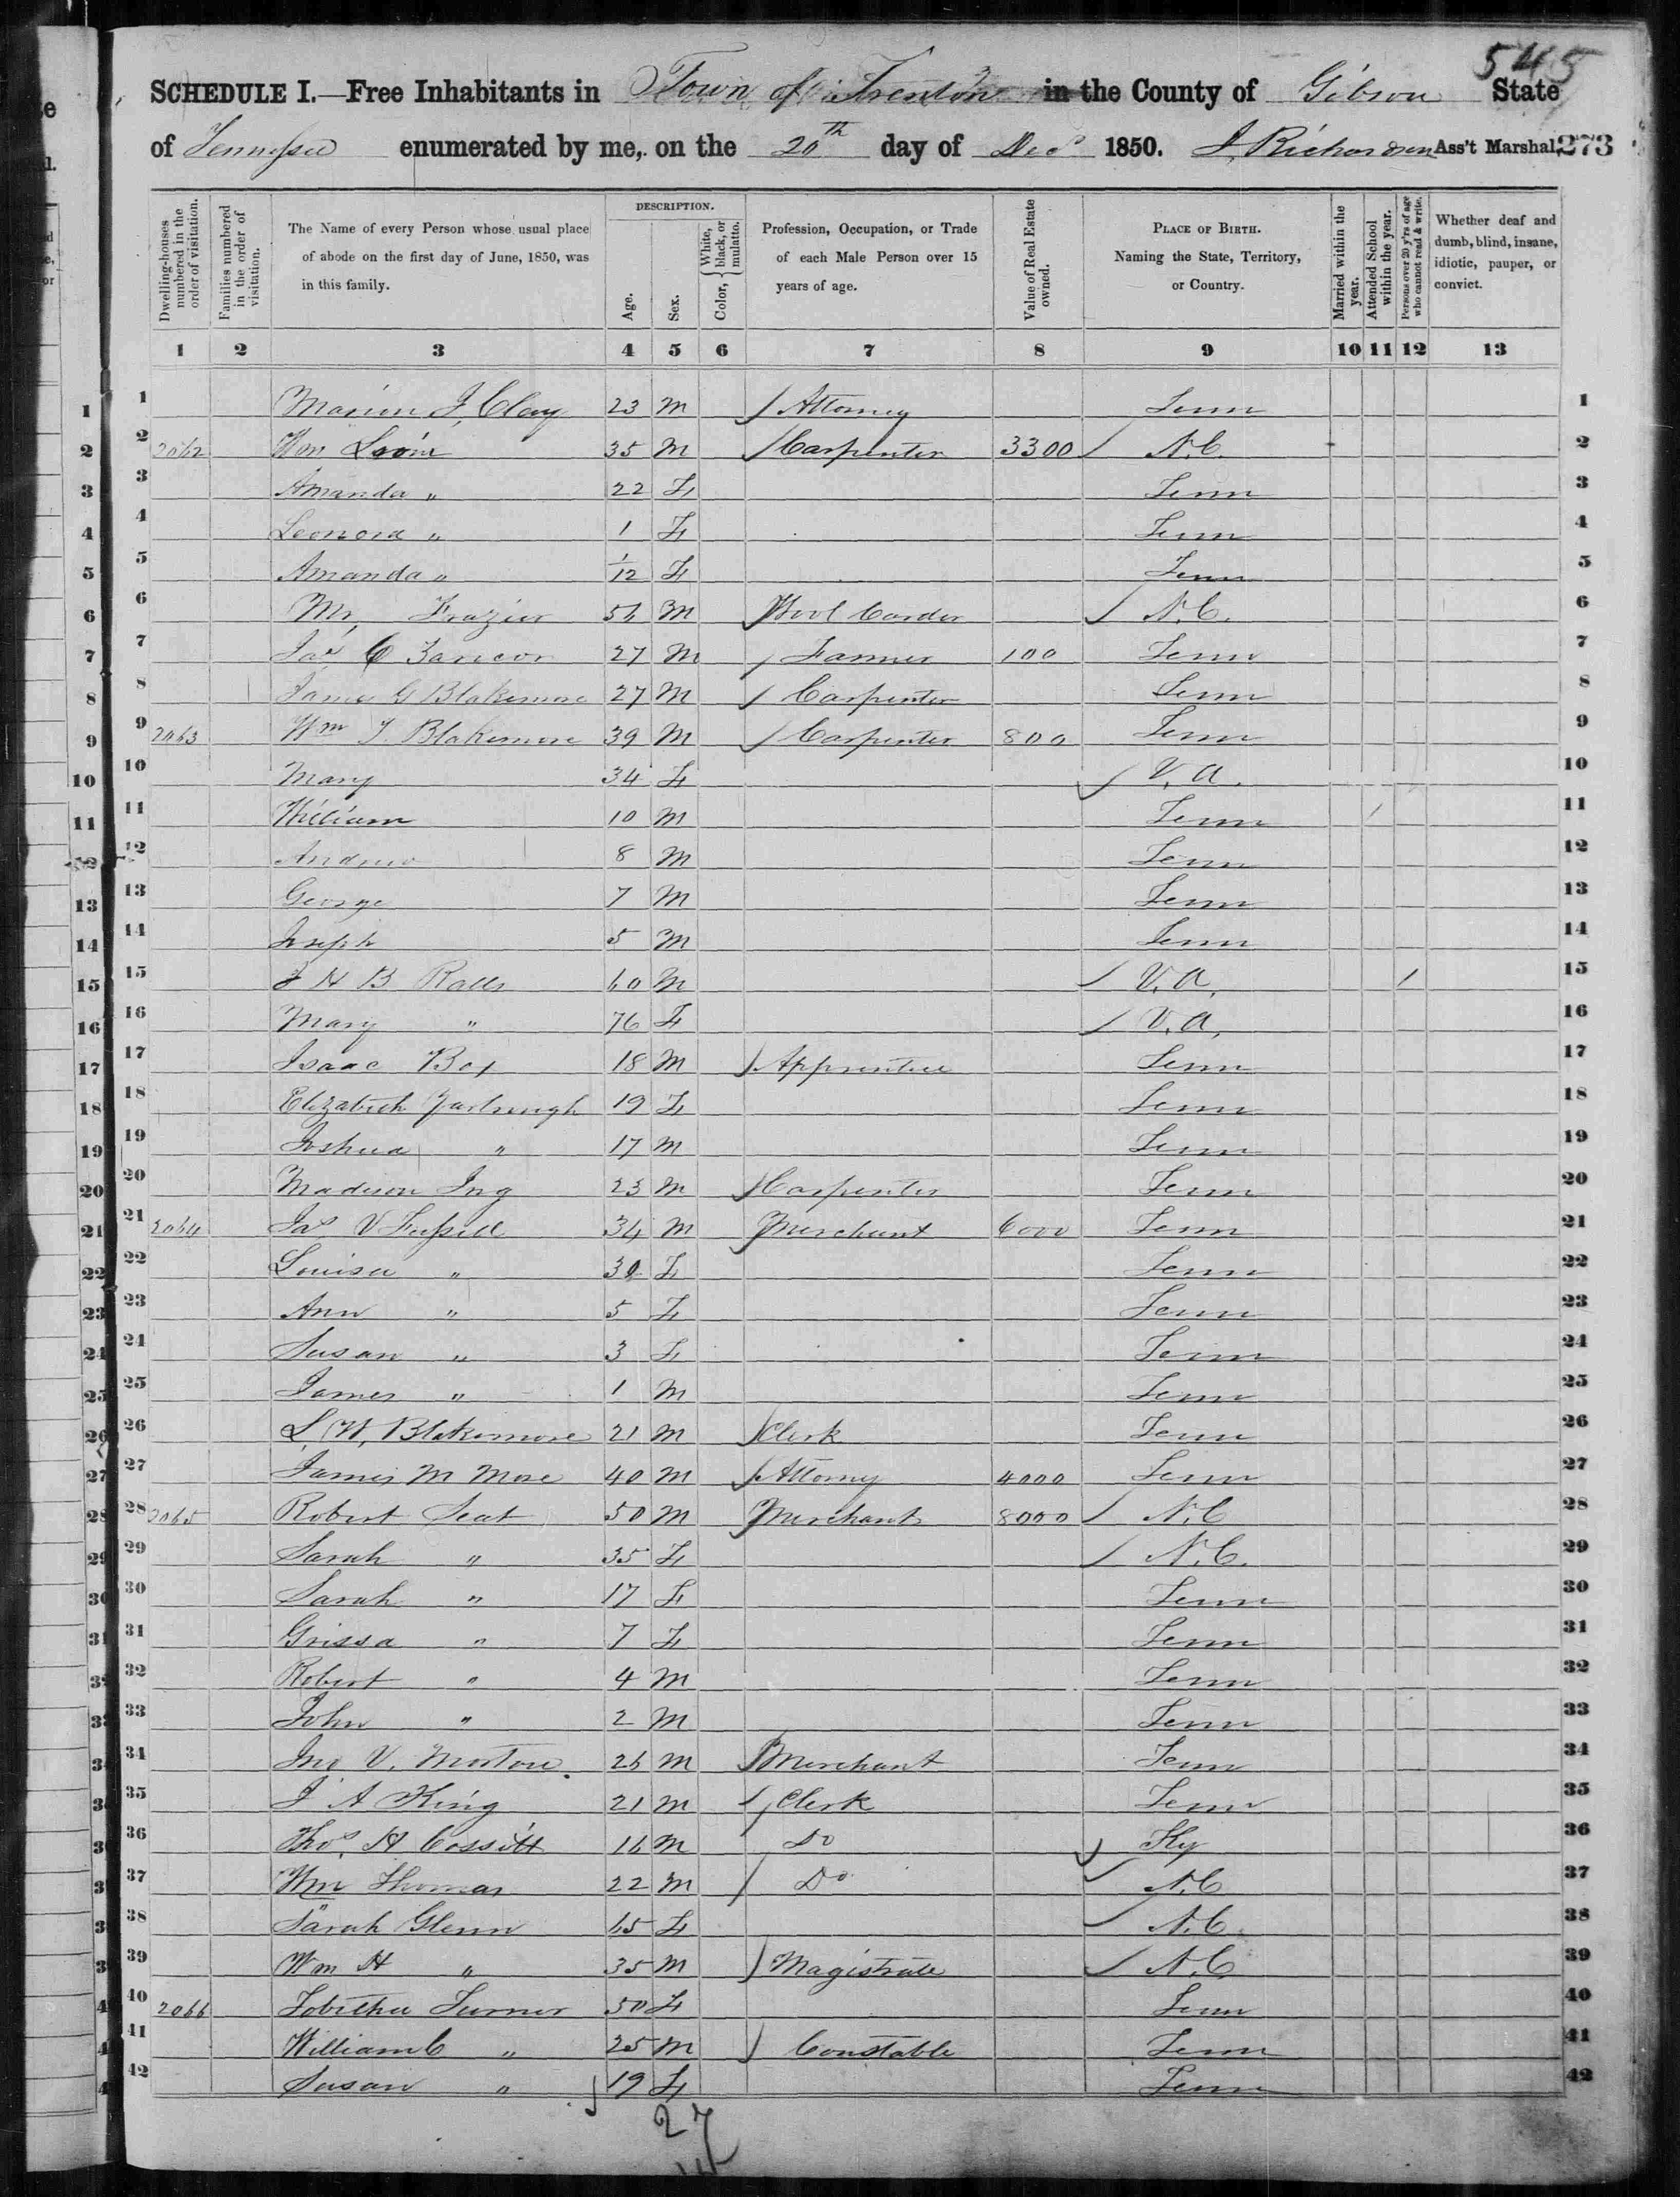 545
SCHEDULE I.—Free Inhabitants in Town of Trenton in the County of Gibson State
of Tennessee enumerated by me, on the 20th day of Decr 1850. J. Richardson Ass't Marshal. 273
Dwelling-houses numbered in the order of visitation.
Families numbered in the order of visitation.
The Name of every Person whose usual place of abode on the first day of June, 1850, was in this family.
DESCRIPTION.
Age.
Sex.
Color, White, black, or mulatto.
Profession, Occupation, or Trade of each Male Person over 15 years of age.
Value of Real Estate owned.
PLACE OF BIRTH. Naming the State, Territory, or Country.
Married within the year.
Attended School within the year.
Persons over 20 y'rs of age who cannot read & write.
Whether deaf and dumb, blind, insane, idiotic, pauper, or convict.
1 2 3 4 5 6 7 8 9 10 11 12 13
1 Marion J. Clay 23 M / Attorney Tenn 1
2 2062 Wm 35 M / Carpenter 3300 / N.C. 2
3 Amanda " 22 F Tenn 3
4 Leonora " 1 F Tenn 4
5 Amanda " 1/12 F Tenn 5
6 Mr. Frazier 56 M / Wool Carder / N.C. 6
7 Jas C 27 M / Farmer 100 Tenn 7
8 James G Blakemore 27 M / Carpenter Tenn 8
9 2063 Wm T. Blakemore 39 M / Carpenter 800 Tenn 9
10 Mary 34 F / V.A. 10
11 William 10 M Tenn / 11
12 Andrew 8 M Tenn 12
13 George 7 M Tenn 13
14 Joseph 5 M Tenn 14
15 J H B Ralls 60 M / V.A. / 15
16 Mary " 76 F / V.A. 16
17 Isaac Box 18 M / Apprentice Tenn 17
18 Elizabeth Yarbrough 19 F Tenn 18
19 Joshua " 17 M Tenn 19
20 Madison Ing 23 M / Carpenter Tenn 20
21 2064 Jas V Fussell 34 M / Merchant 6000 Tenn 21
22 Louisa " 30 F Tenn 22
23 Ann " 5 F Tenn 23
24 Susan " 3 F Tenn 24
25 James " 1 M Tenn 25
26 L. W. Blakemore 21 M / Clerk Tenn 26
27 James M More 40 M / Attorney 4000 Tenn 27
28 2065 Robert Seat 50 M / Merchant 8000 / N.C 28
29 Sarah " 35 F / N.C. 29
30 Sarah " 17 F Tenn 30
31 Grissa " 7 F Tenn 31
32 Robert " 4 M Tenn 32
33 John " 2 M Tenn 33
34 Jno V. Morton 26 M / Merchant Tenn 34
35 J A King 21 M / Clerk Tenn 35
36 Thos. H Cossitt 16 M Do / Ky 36
37 Wm Thomas 22 M / Do / N.C 37
38 Sarah Glenn 65 F / N.C. 38
39 Wm H " 35 M / Magistrate / N.C. 39
40 2066 Tobitha Turner 50 F Tenn 40
41 William C " 25 M / Constable Tenn 41
42 Susan " 19 F Tenn 42
27